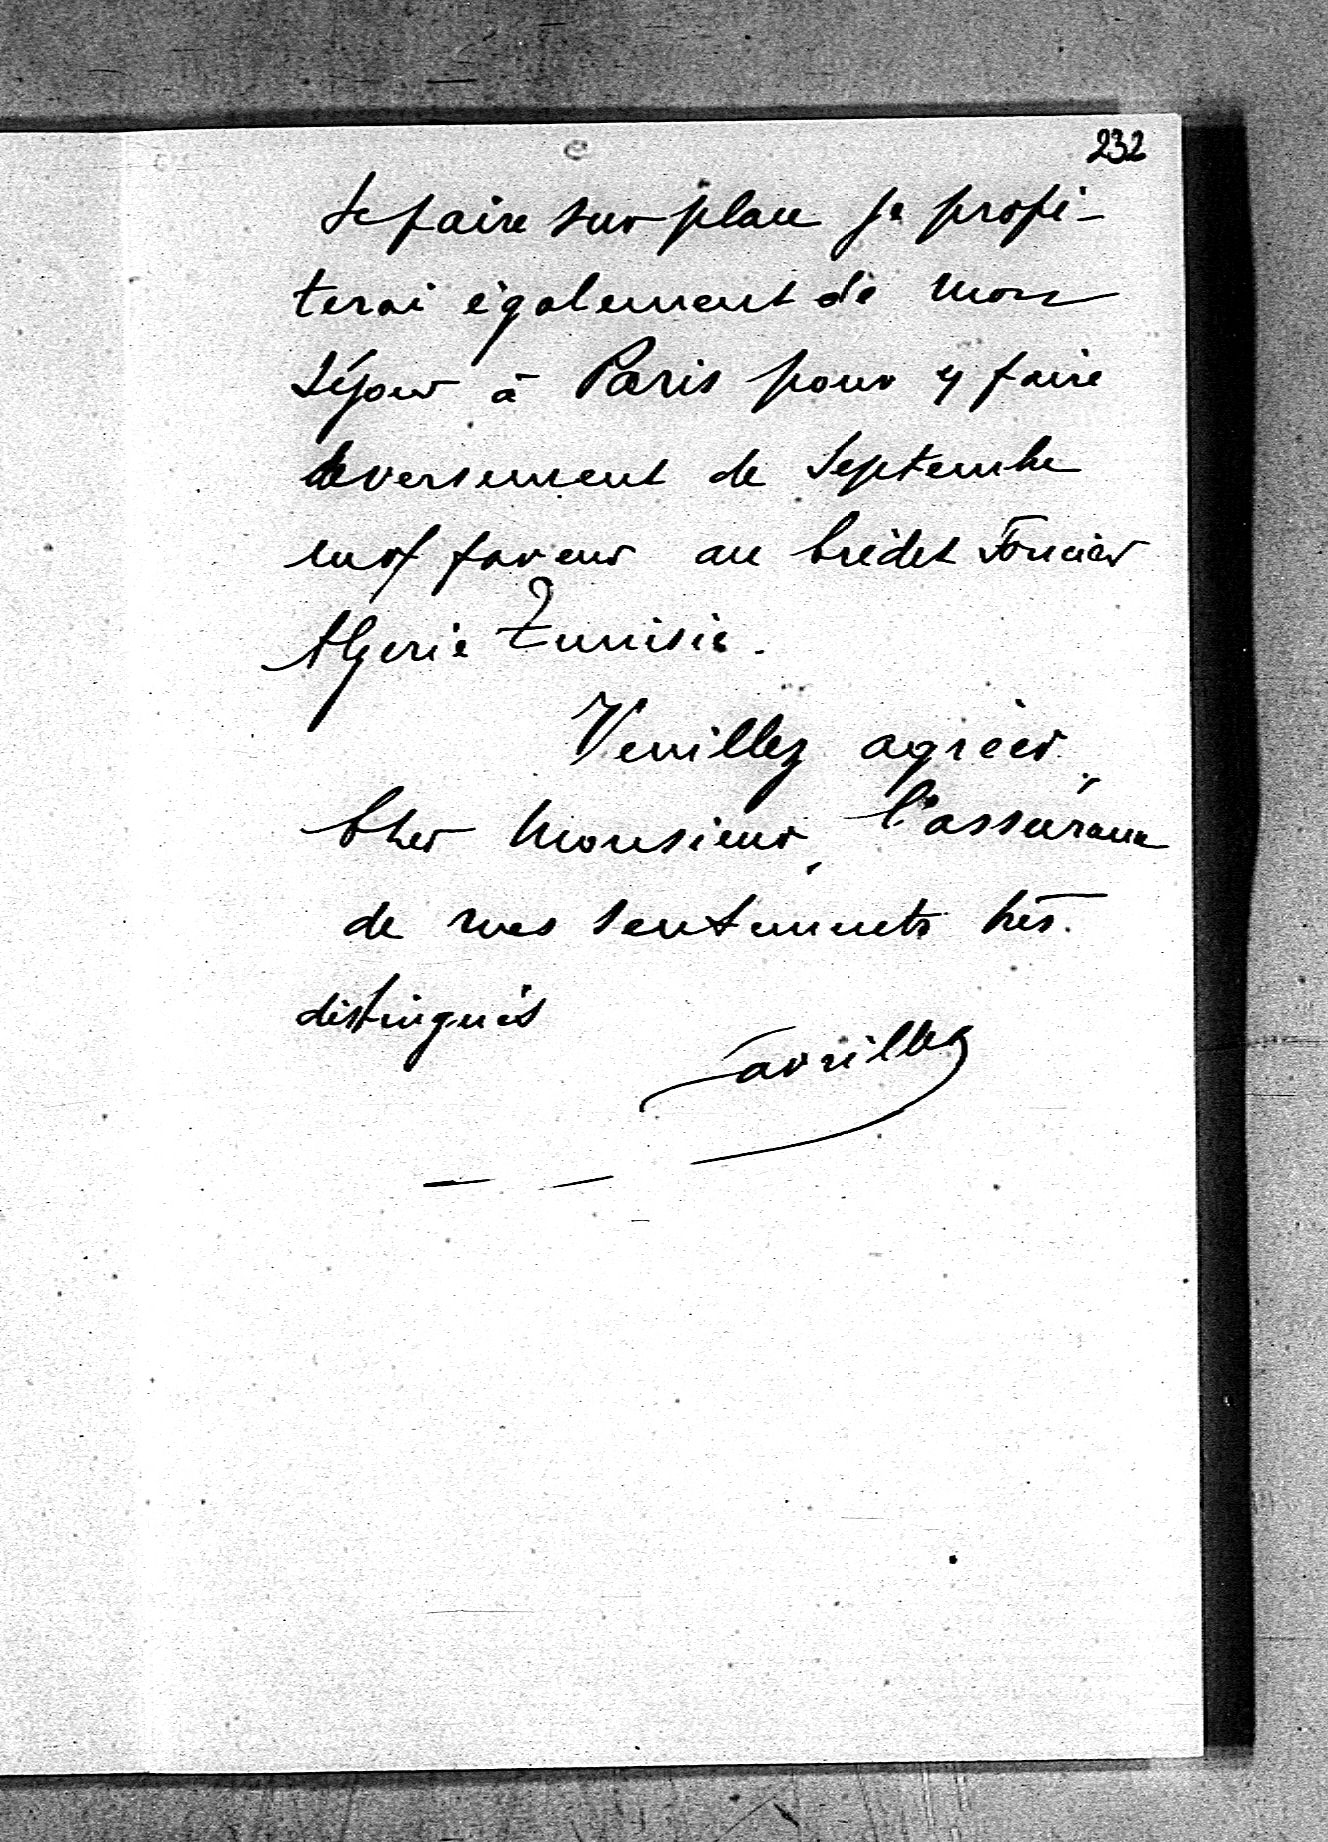 232
se faire sur place je profi-
terai également de mon
séjour à Paris pour y faire
le versement de Septembre
en faveur au Crédit Foncier
Algerie Tunisie.
Veuillez agréer,
Cher Monsieur, l'assurance
de mes sentiments très
distingués